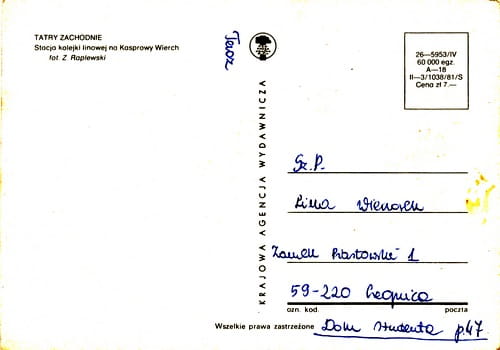 TATRY ZACHODNIE
Stacja kolejki linowej na Kasprowy Wierch
fot. Z. Raplewski
KRAJOWA AGENCJA WYDAWNICZA
26—5953/IV
60 000 egz.
A—18
II—3/1038/81/S
Cena zł 7.—
Sz. P.
Zamek Piastowski 1
59-220 Legnica
ozn. kod. poczta
Wszelkie prawa zastrzeżone
Dom Studenta p.47